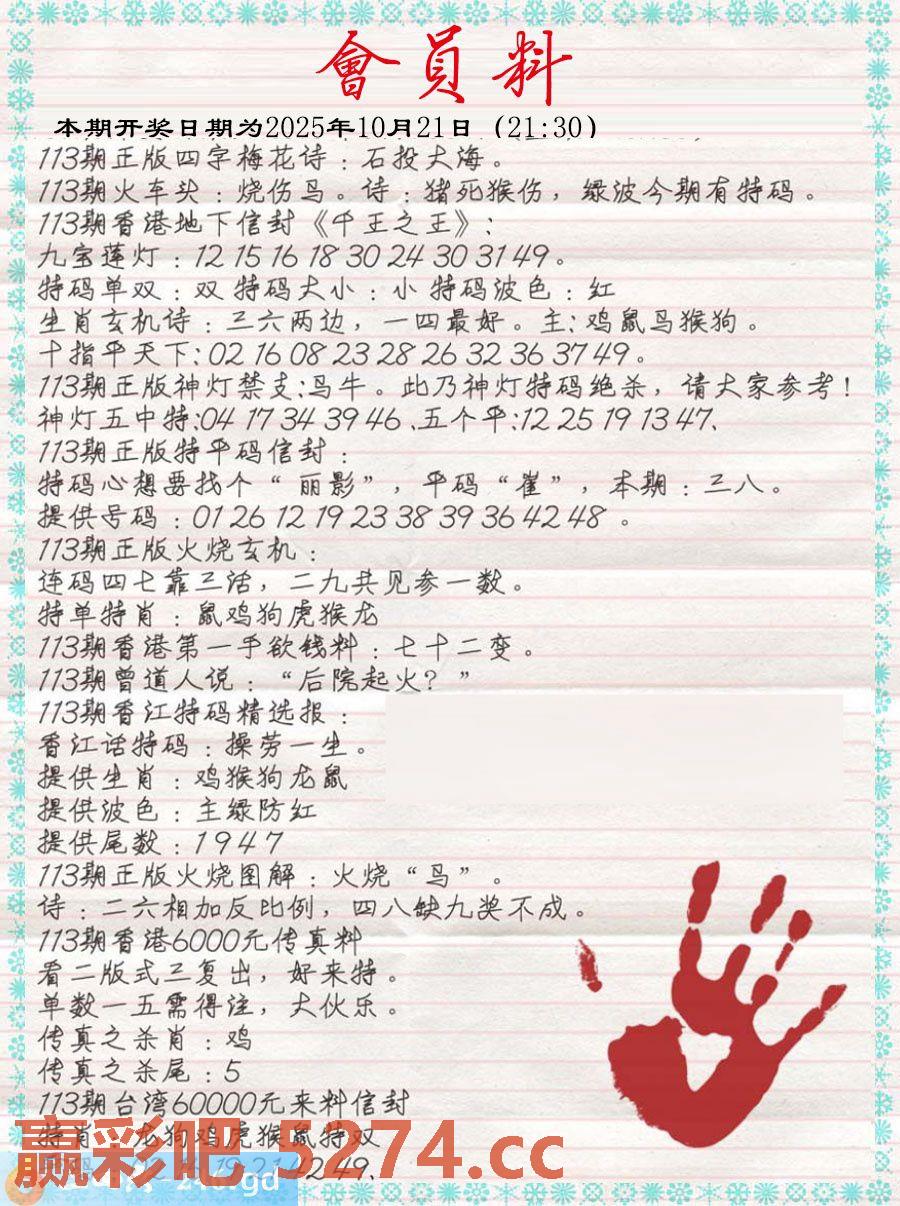 會員料
本期开奖日期为2025年10月21日（21:30）
113期正版四字梅花诗：石投大海。
113期火车头：烧伤鸟。诗：猪死猴伤，绿波今期有特码。
113期香港地下信封《千王之王》：
九宝莲灯：12 15 16 18 30 24 30 31 49。
特码单双：双 特码大小：小 特码波色：红
生肖玄机诗：三六两边，一四最好。主：鸡鼠鸟猴狗。
十指平天下：02 16 08 23 28 26 32 36 37 49。
113期正版神灯禁支：鸟牛。此乃神灯特码绝杀，请大家参考！
神灯五中特：04 17 34 39 46、五个平：12 25 19 13 47、
113期正版特平码信封：
特码心想要找个“丽影”，平码“崔”，本期：三八。
提供号码：01 26 12 19 23 38 39 36 42 48 。
113期正版火烧玄机：
连码四七靠三活，二九共见参一数。
特单特肖：鼠鸡狗虎猴龙
113期香港第一手欲钱料：七十二变。
113期曾道人说：“后院起火？”
113期香江特码精选报：
香江话特码：操劳一生。
提供生肖：鸡猴狗龙鼠
提供波色：主绿防红
提供尾数：1 9 4 7
113期正版火烧图解：火烧“鸟”。
诗：二六相加反比例，四八缺九奖不成。
113期香港6000元传真料
看二版式三复出，好来特。
单数一五需得注，大伙乐。
传真之杀肖：鸡
传真之杀尾：5
113期台湾60000元来料信封
特肖：龙狗鸡虎猴鼠特双
02 14 19 21 42 49、
赢彩吧.5274.cc